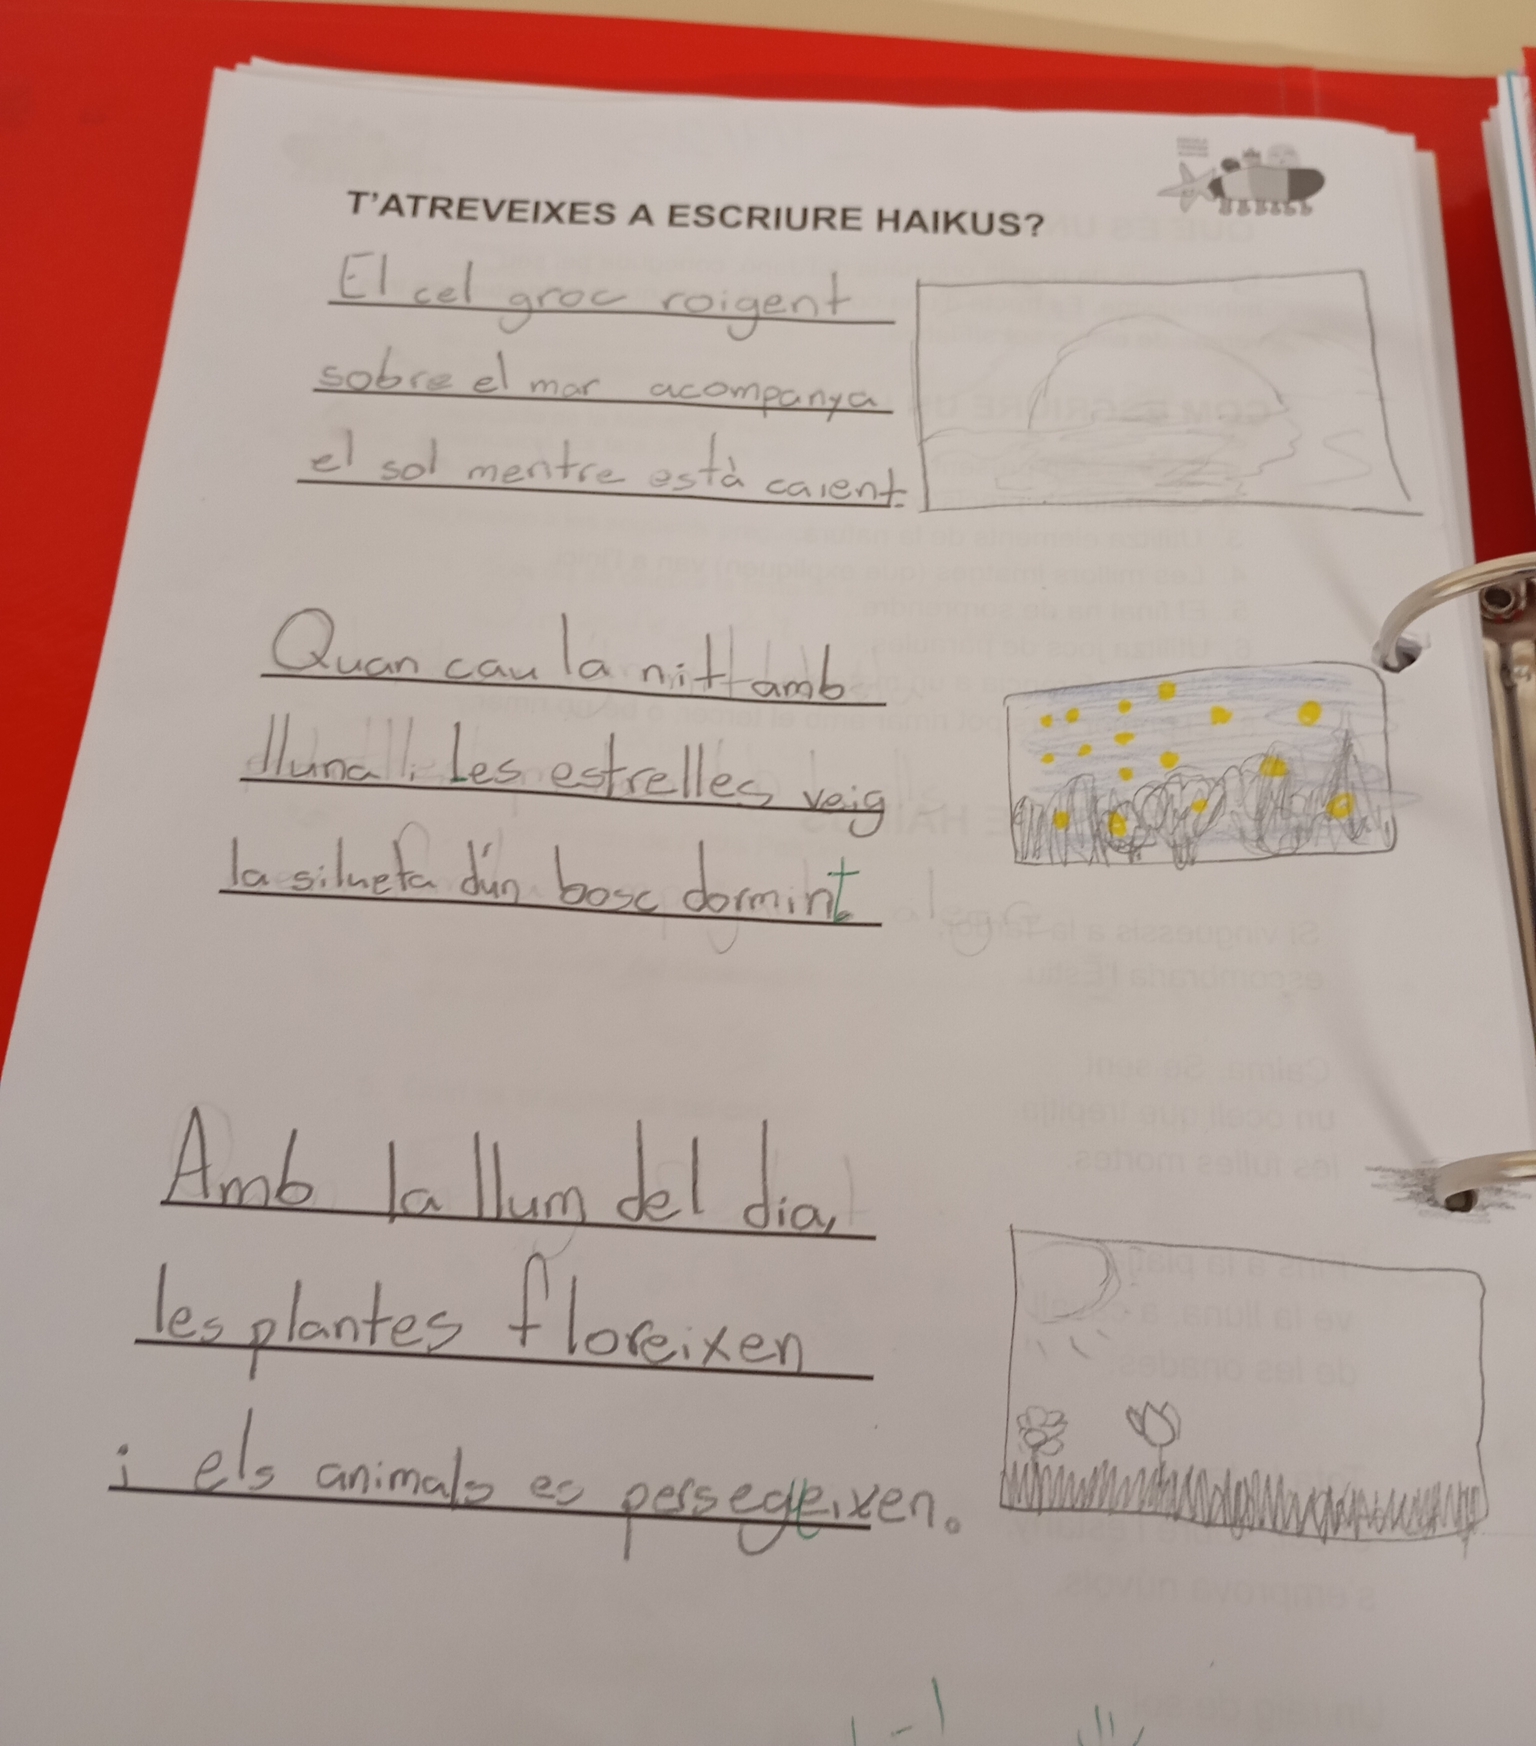 T'ATREVEIXES A ESCRIURE HAIKUS?
El cel groc roigent
sobre el mar acompanya
el sol mentre està caient.
Quan cau la nit amb
lluna i les estrelles veig
la silueta d'un bosc dormint.
Amb la llum del dia,
les plantes floreixen
i els animals es persegeixen.